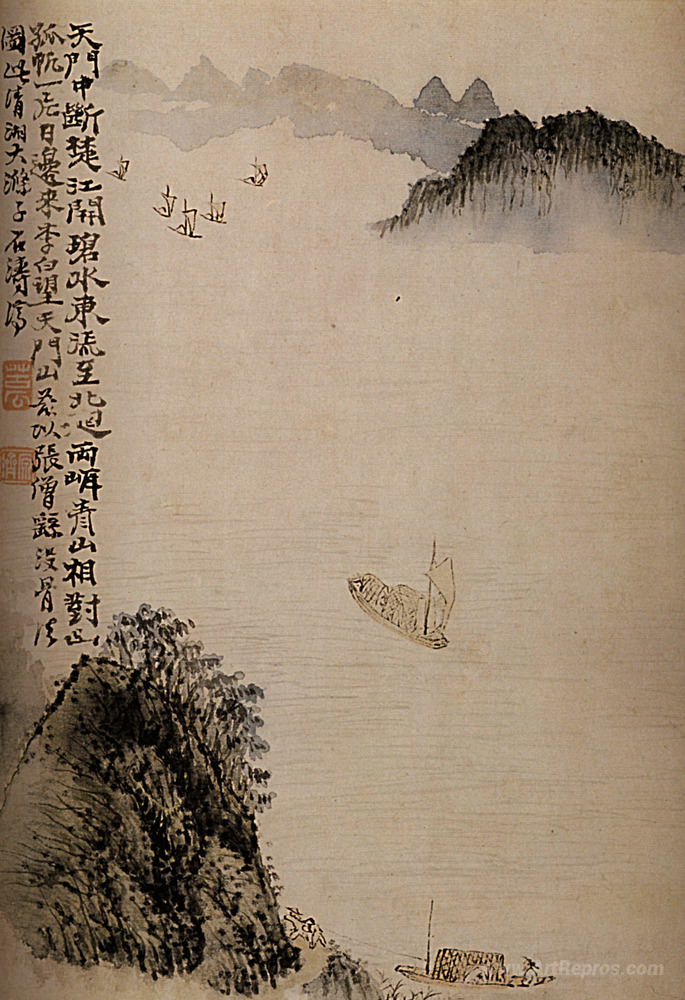 天門中斷楚江開碧水東流至北迴兩岸青山相對出
孤帆一片日邊來李白望天門山茲以張僧繇沒骨法
圖此清湘大滌子石濤濟
ArtRepros.com